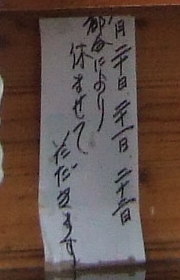 月二十日.二十一日.二十二日
都合により
休ませて
いただきます